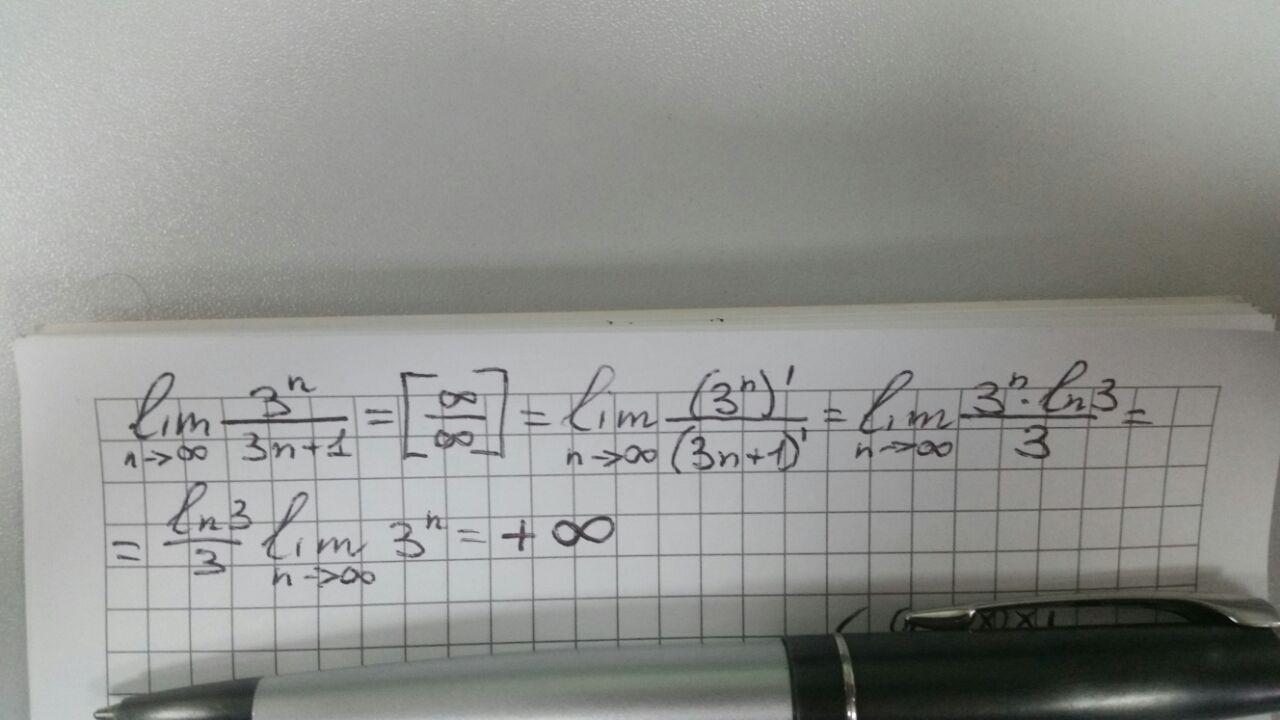 lim n→∞ 3ⁿ/(3n+1) = [∞/∞] = lim n→∞ (3ⁿ)'/(3n+1)' = lim n→∞ (3ⁿ · ln3)/3 =
= ln3/3 lim n→∞ 3ⁿ = + ∞